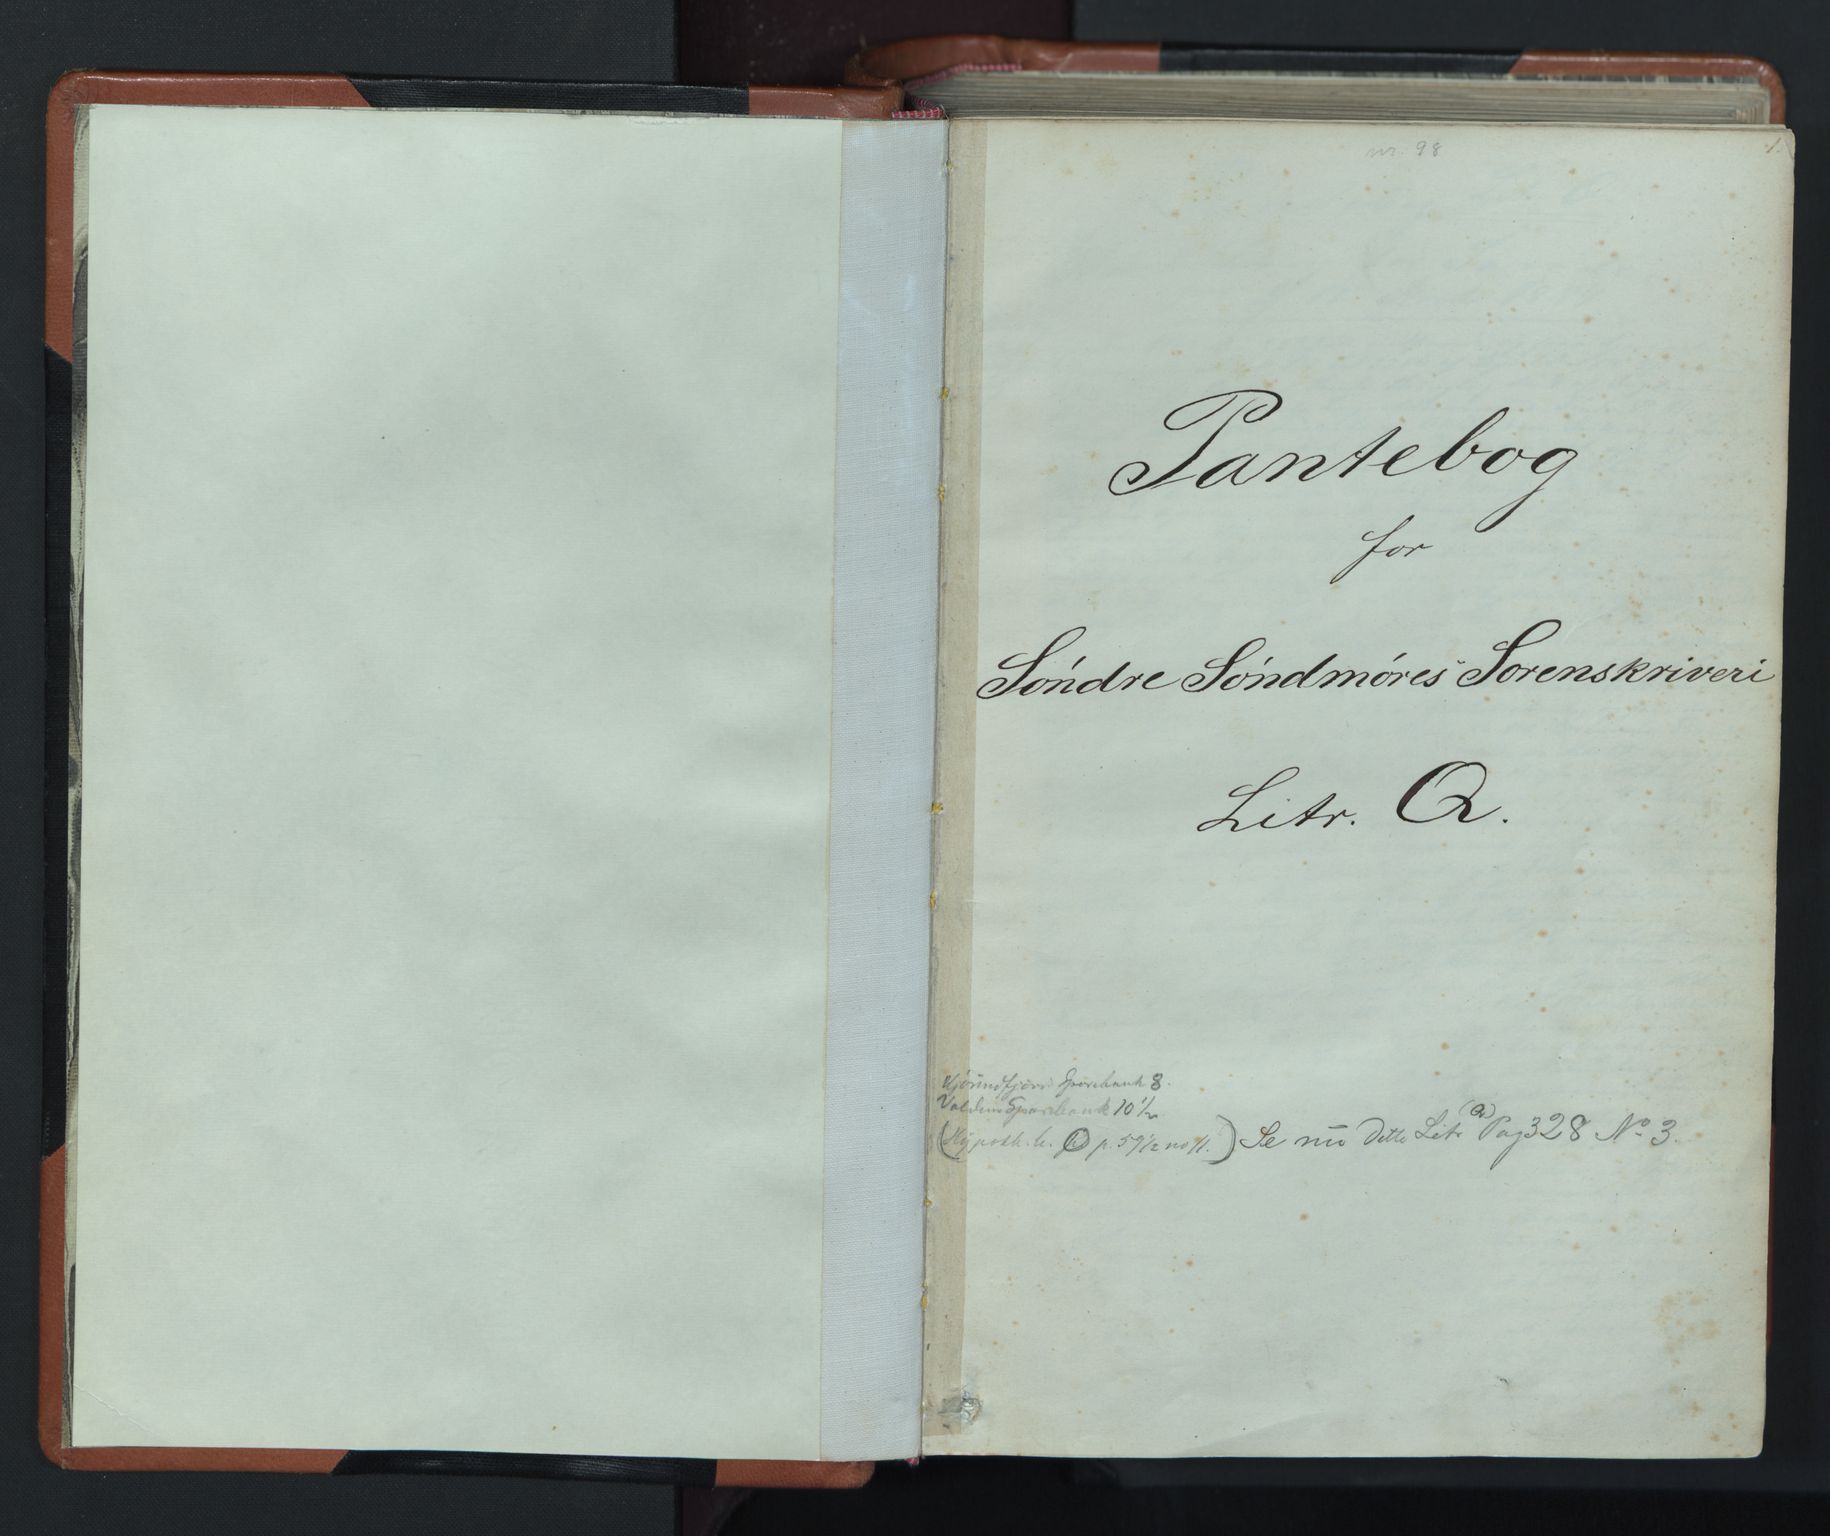 nr. 98
1.
Pantebog
for
Söndre Söndmöres Sorenskriveri
Litr. Q.
Sparebank 8.
Sparebank 10½
(Hypoth. b. p. 59½ no 1.) Se nu dette Litr (Q) Pag 328 No 3.